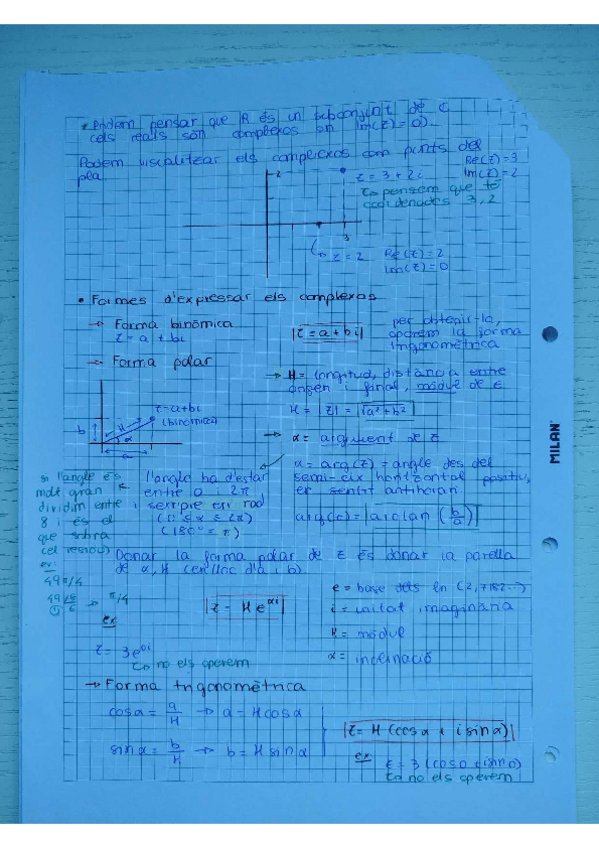 • Podem pensar que R és un subconjunt de C
(els reals són complexos on Im(z)=0).
Podem visualitzar els complexos com punts del
pla
2
3
z = 3+2i
Re(z)=3
Im(z)=2
↳ pensem que té
coordenades 3,2
↳ z=2
Re(z)=2
Im(z)=0
• Formes d'expressar els complexos
→ Forma binòmica
z = a + bi
|z=a+bi|
per obtenir-la,
operem la forma
trigonomètrica
→ Forma polar
b
H
α
a
z=a+bi
(binòmica)
→ H = longitud, distància entre
origen i final, mòdul de z
H = |z| = √a²+b²
→ α = argument de z
α = arg(z) = angle des del
semi-eix horitzontal positiu,
en sentit antihorari.
arg(z) = arctan (b/a)
l'angle ha d'estar
entre 0 i 2π
i sempre en rad
(0≤α≤2π)
(180º=π)
si l'angle és
molt gran
dividim entre
8 i és el
que sobra
(el residu)
ex:
49π/4
→ π/4
Donar la forma polar de z és donar la parella
de α, H (en lloc d'a i b)
|z = H e^αi|
e = base dels ln (2,7182...)
i = unitat imaginària
H = mòdul
α = inclinació
ex
z = 3e^0i
↳ no els operem
→ Forma trigonomètrica
cosα = a/H → a = H cosα
sinα = b/H → b = H sinα
|z = H (cosα + i sinα)|
ex
z = 3 (cos0 + i sin0)
↳ no els operem
MILAN